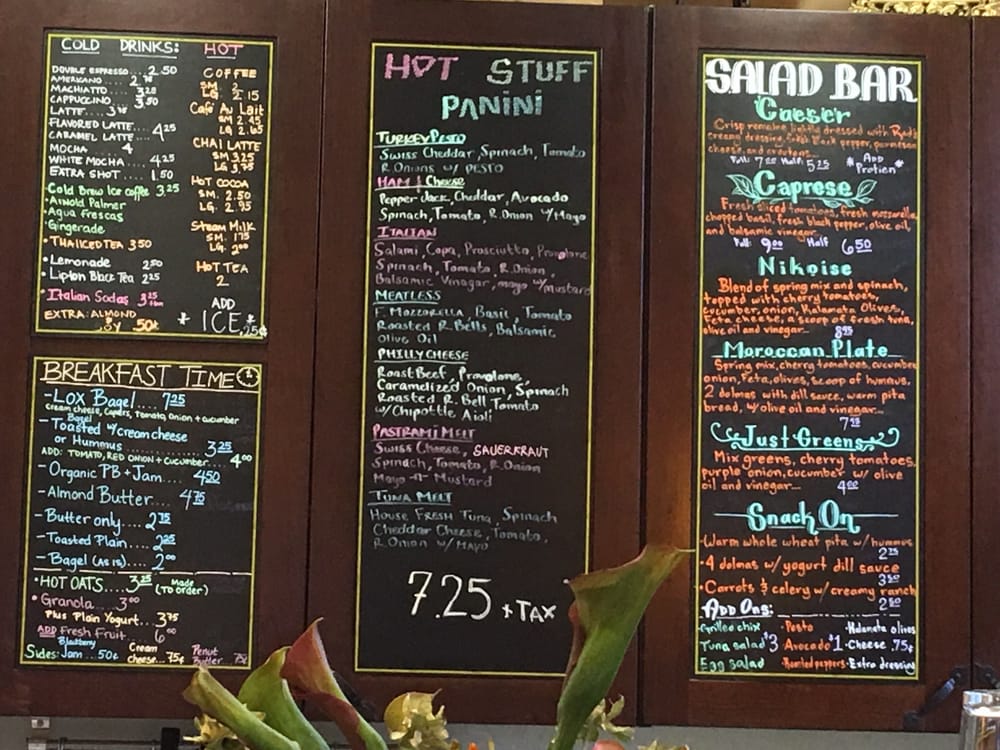 COLD DRINKS:
DOUBLE ESPRESSO.... 2.50
AMERICANO....
MACHIATTO.... 3.25
CAPPUCCINO.... 3.50
LATTE....
FLAVORED LATTE...
CARAMEL LATTE.... 4.25
MOCHA 4
WHITE MOCHA.... 4.25
EXTRA SHOT.... 1.50
Cold Brew Ice coffee 3.25
• Arnold Palmer
• Aqua Frescas
• Gingerade
• THAI ICED TEA 3.50
• Lemonade 2.50
• Lipton Black Tea 2.25
• Italian Sodas 3.25
EXTRA: ALMOND
SOY 50¢
HOT
COFFEE
SM. 2
LG. 2.15
Café Au Lait
SM 2.45
LG 2.65
CHAI LATTE
SM 3.25
LG 3.75
HOT COCOA
SM. 2.50
LG. 2.95
Steam Milk
SM. 1.75
LG. 2.00
HOT TEA
2
ADD
* ICE .25¢ *
BREAKFAST TIME
- LOX Bagel.... 7.25
cream cheese, Capers, Tomato, Onion + cucumber
Bagel
- Toasted w/cream cheese
or Hummus........ 3.25
ADD: TOMATO, RED ONION + CUCUMBER.... 4.00
- Organic PB + Jam.... 4.50
- Almond Butter... 4.75
- Butter only.... 2.75
- Toasted Plain.... 2.25
- Bagel (AS IS).... 2.00
• HOT OATS.... 3.25 (Made TO order)
• Granola.... 3.00
Plus Plain Yogurt... 3.75
ADD Fresh Fruit 6.00
Sides: Blackberry Jam... 50¢ Cream cheese... 75¢ Penut Butter 75¢
HOT STUFF
PANINI
TURKEY PESTO
Swiss Cheddar, Spinach, Tomato
R. Onions w/ PESTO
HAM & Cheese
Pepper Jack, Cheddar, Avocado
Spinach, Tomato, R. Onion w/Mayo
ITALIAN
Salami, Copa, Prosciutto, Provolone
Spinach, Tomato, R. Onion,
Balsamic Vinegar, mayo w/mustard
MEATLESS
F. Mozzorella, Basil, Tomato
Roasted R. Bells, Balsamic
Olive Oil
PHILLY CHEESE
Roast Beef, Provolone,
Caramelized Onion, Spinach
Roasted R. Bell, Tomato
w/Chipottle Aioli
PASTRAMI MELT
Swiss Cheese, SAUERKRAUT
Spinach, Tomato, R. Onion
Mayo + Mustard
TUNA MELT
House FRESH Tuna, Spinach
Cheddar Cheese, Tomato,
R. Onion w/ MAYO
7.25 + TAX
SALAD BAR
Caeser
Crisp romaine lightly dressed with
creamy dressing, fresh black pepper, parmesan
cheese, and croutons...
Full: 7.25 Half: 5.25 * Add Protien *
Caprese
Fresh sliced tomatoes, fresh mozzarella,
chopped basil, fresh black pepper, olive oil,
and balsamic vinegar...
Full: 9.00 Half 6.50
Nikoise
Blend of spring mix and spinach,
topped with cherry tomatoes,
cucumber, onion, Kalamata Olives,
Feta cheese, a scoop of fresh tuna,
olive oil and vinegar... 8.95
Moroccan Plate
Spring mix, cherry tomatoes, cucumber
onion, Feta, olives, scoop of humus,
2 dolmas with dill sauce, warm pita
bread, w/olive oil and vinegar...
Just Greens
Mix greens, cherry tomatoes,
purple onion, cucumber w/ olive
oil and vinegar... 4.00
Snack On
• Warm whole wheat pita w/ hummus
2.75
• 4 dolmas w/ yogurt dill sauce
3.50
• Carrots & celery w/ creamy ranch
2.50
Add Ons:
Grilled chix • Pesto • Kalamata olives
Tuna salad $3 • Avocado $1 • Cheese .75¢
Egg salad • Roasted peppers • Extra dressing